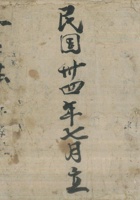 民国卅四年七月立